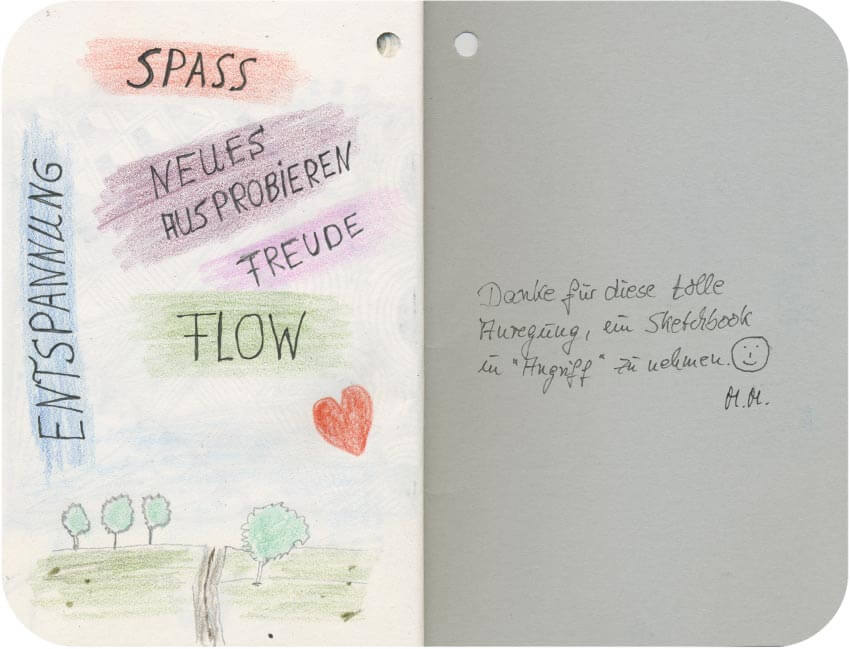 SPASS
NEUES
AUSPROBIEREN
FREUDE
ENTSPANNUNG
FLOW
Danke für diese tolle
Anregung, ein Sketchbook
in "Angriff" zu nehmen.
M.M.